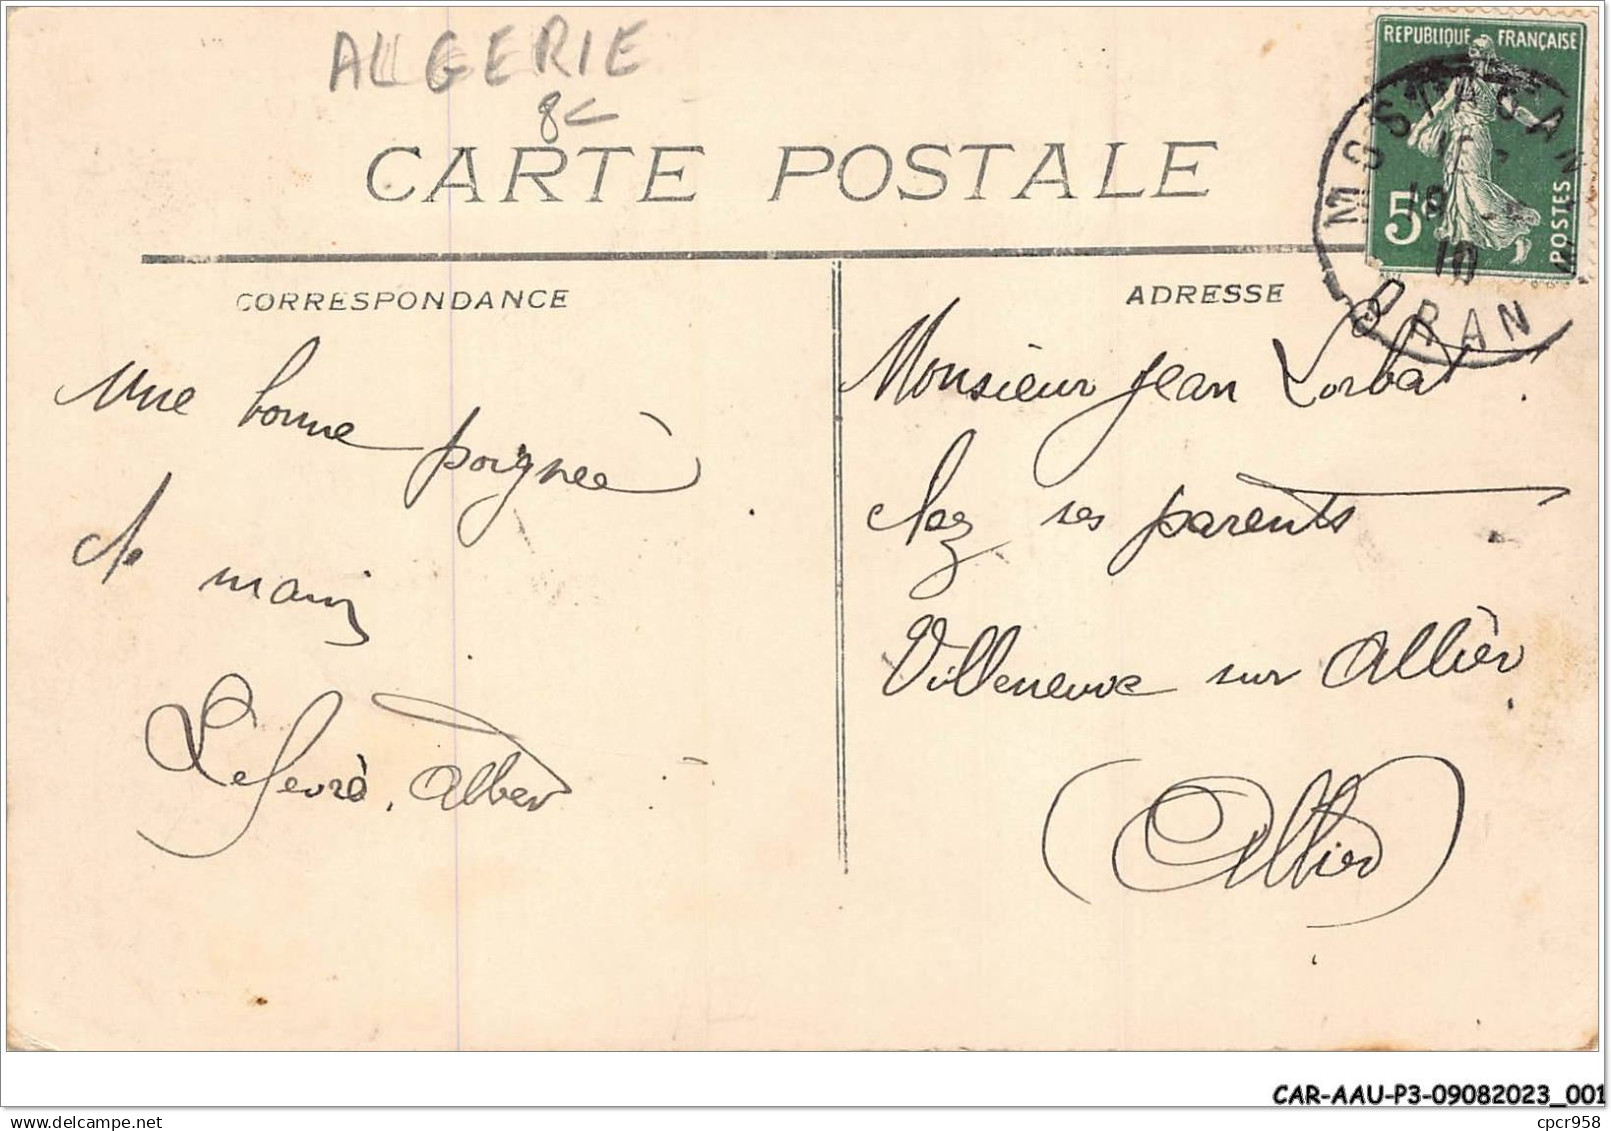 ALGERIE
8€
CARTE POSTALE
REPUBLIQUE FRANÇAISE
5c
POSTES
MOSTAGANEM
19
10
ORAN
CORRESPONDANCE
Une bonne poignée
de main
Lefevre, Albert
ADRESSE
Monsieur Jean Lorbat
chez ses parents
Villeneuve sur Allier
(Allier)
CAR-AAU-P3-09082023_001
cpcr958